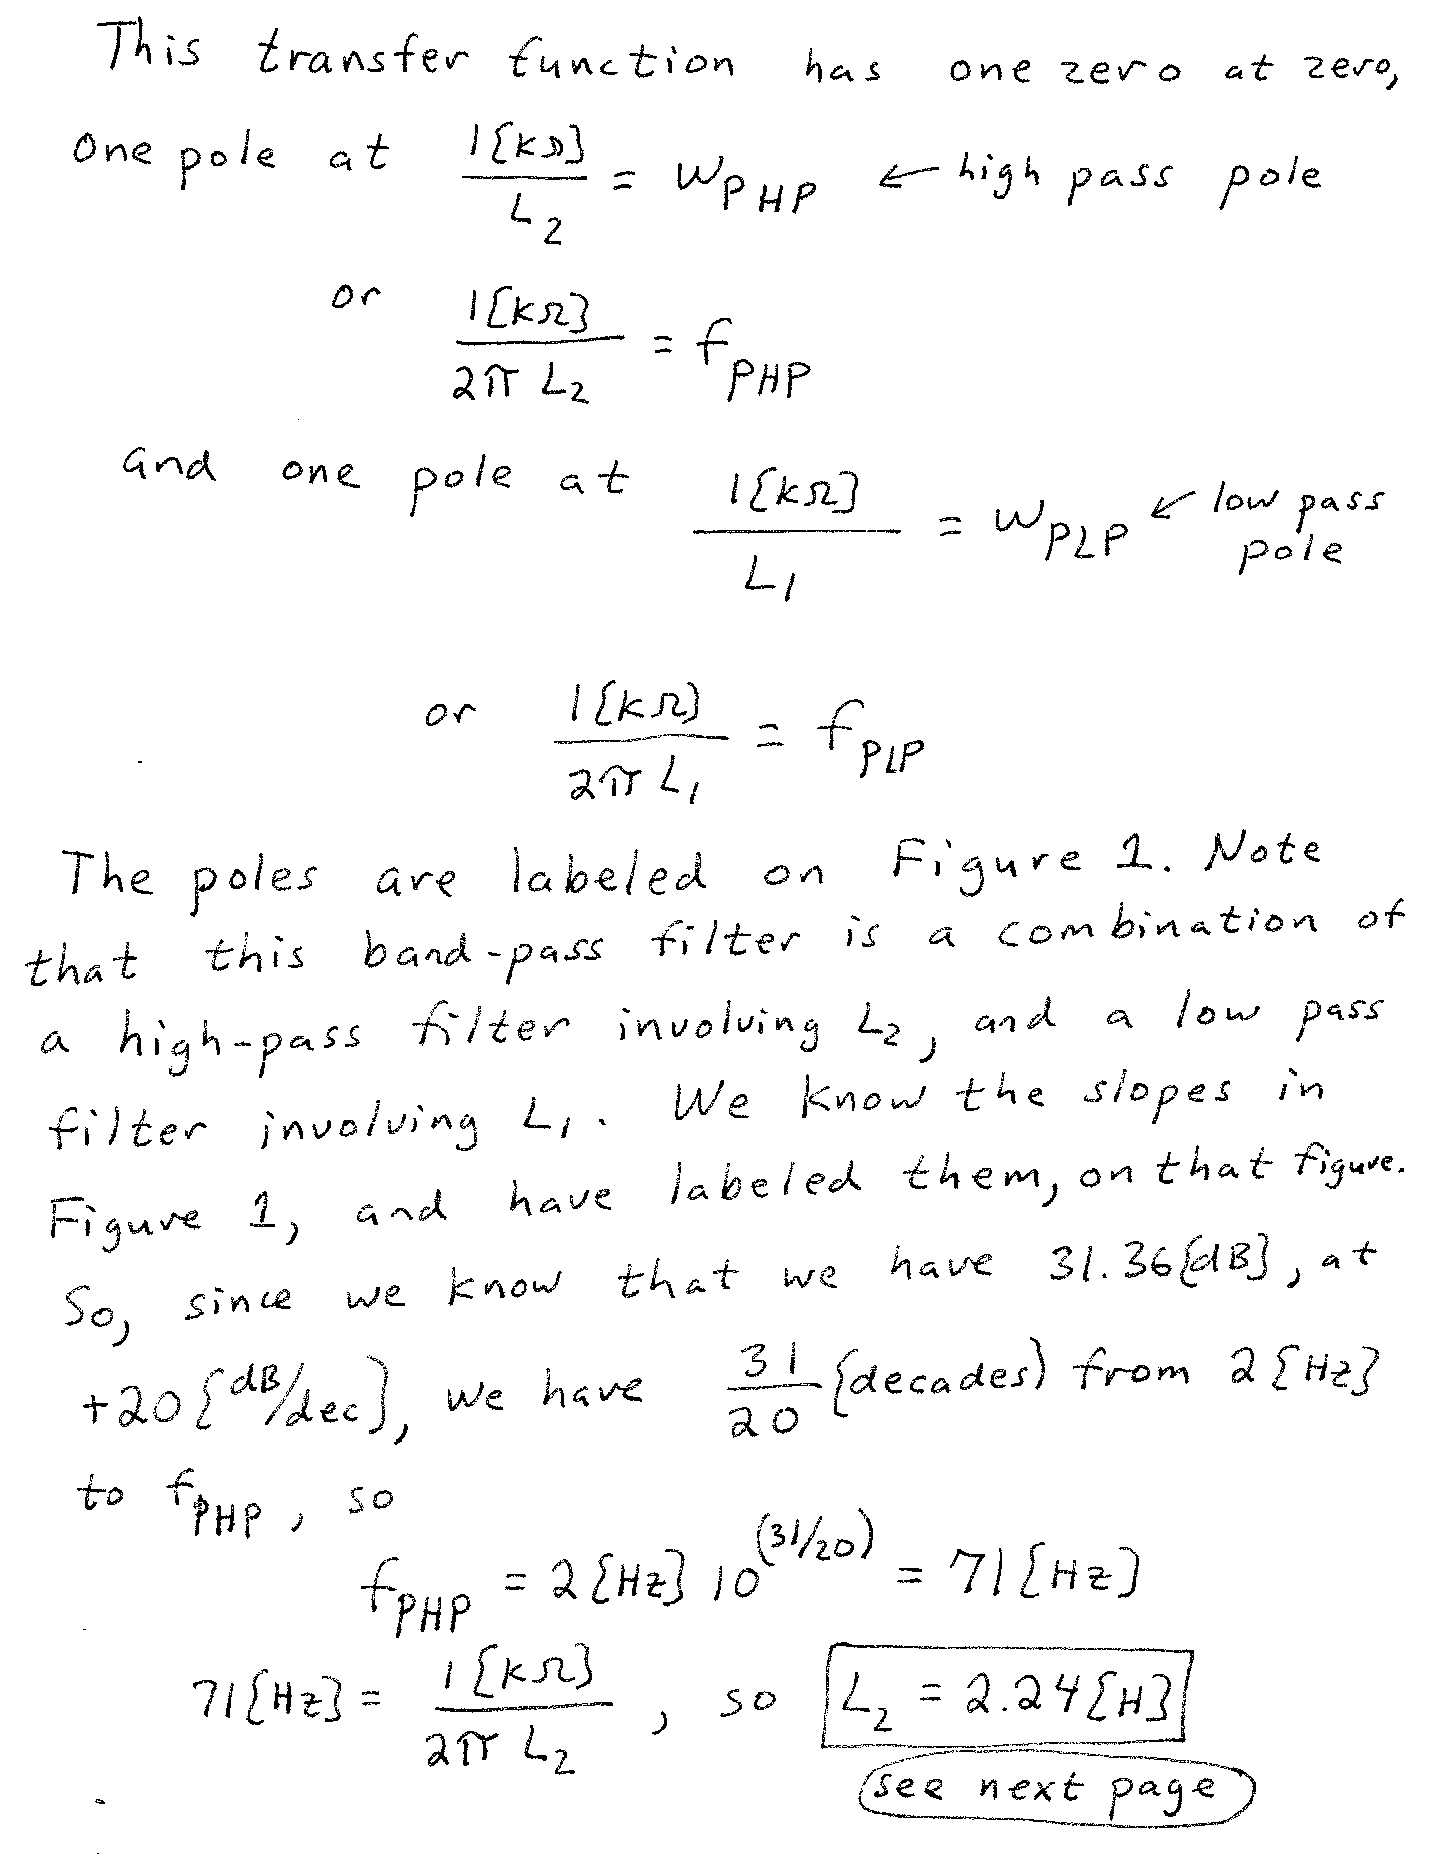 This transfer function has one zero at zero,
one pole at 1[kΩ] / L₂ = ω_PHP ← high pass pole
or 1[kΩ] / 2π L₂ = f_PHP
and one pole at 1[kΩ] / L₁ = ω_PLP ← low pass pole
or 1[kΩ] / 2π L₁ = f_PLP
The poles are labeled on Figure 1. Note
that this band-pass filter is a combination of
a high-pass filter involving L₂, and a low pass
filter involving L₁. We know the slopes in
Figure 1, and have labeled them, on that figure.
So, since we know that we have 31.36[dB], at
+20[dB/dec], we have 31/20 [decades] from 2[Hz]
to f_PHP, so
f_PHP = 2[Hz] 10^(31/20) = 71[Hz]
71[Hz] = 1[kΩ] / 2π L₂, so L₂ = 2.24[H]
see next page